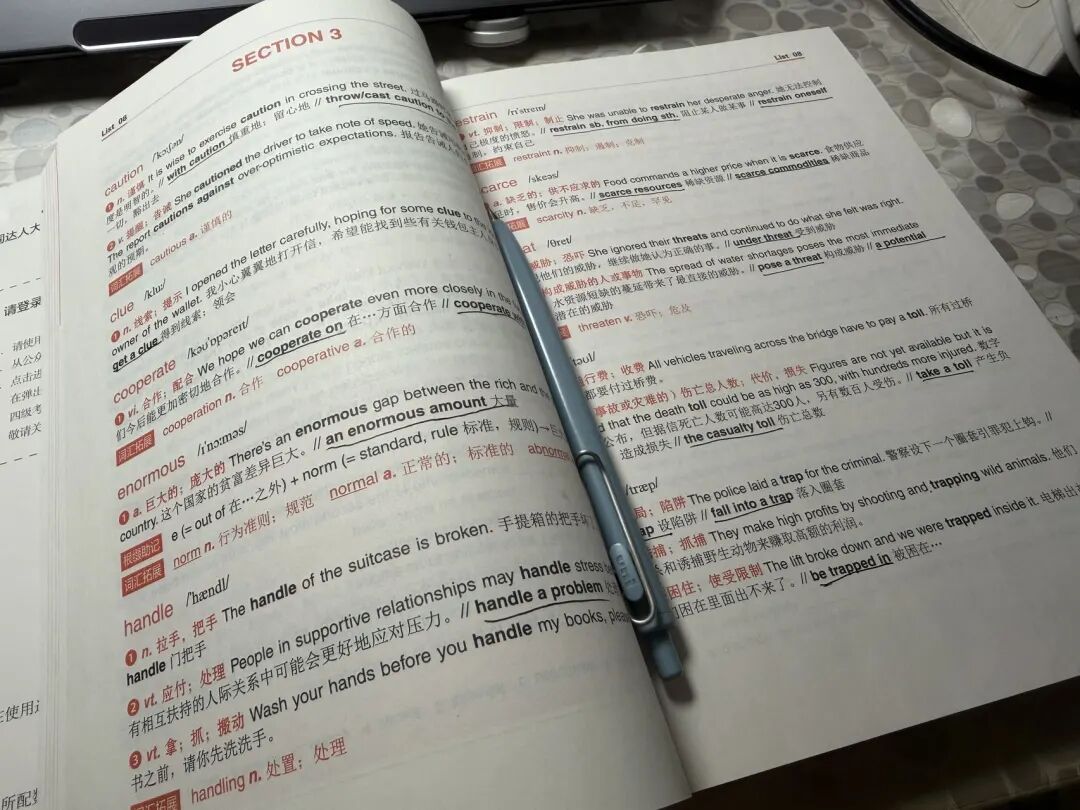 SECTION 3
List 08
caution /'kɔːʃən/
❶ n. 谨慎 It is wise to exercise caution in crossing the street. 过马路时
度是明智的。// with caution 慎重地；留心地 // throw/cast caution to
一切，豁出去
❷ v. 提醒；告诫 She cautioned the driver to take note of speed.
The report cautions against over-optimistic expectations. 报告告诫人
观的预期。
词汇拓展 cautious a. 谨慎的
clue /kluː/
❶ n. 线索；提示 I opened the letter carefully, hoping for some clue to
owner of the wallet. 我小心翼翼地打开信，希望能找到些有关钱包主人
get a clue 得到线索；领会
cooperate /kəʊ'ɒpəreɪt/
❶ vi. 合作；配合 We hope we can cooperate even more closely in the
们今后能更加密切地合作。// cooperate on 在…方面合作 // cooperate with
词汇拓展 cooperation n. 合作 cooperative a. 合作的
enormous /ɪ'nɔːməs/
❶ a. 巨大的；庞大的 There's an enormous gap between the rich and the
country. 这个国家的贫富差异巨大。// an enormous amount 大量
根缀助记 e (= out of 在…之外) + norm (= standard, rule 标准，规则)→
词汇拓展 norm n. 行为准则；规范 normal a. 正常的；标准的
handle /'hændl/
❶ n. 拉手，把手 The handle of the suitcase is broken. 手提箱的把手坏了
handle 门把手
❷ vt. 应付；处理 People in supportive relationships may handle stress
有相互扶持的人际关系中可能会更好地应对压力。// handle a problem
❸ vt. 拿；抓；搬动 Wash your hands before you handle my books,
书之前，请你先洗洗手。
词汇拓展 handling n. 处置；处理
List 08
estrain /rɪ'streɪn/
vt. 抑制；限制；制止 She was unable to restrain her desperate anger. 她无法控制
己极度的愤怒。// restrain sb. from doing sth. 阻止某人做某事 // restrain oneself
制，约束自己
restraint n. 抑制；遏制；克制
carce /skeəs/
a. 缺乏的；供不应求的 Food commands a higher price when it is scarce. 食物供应
足时，售价会升高。// scarce resources 稀缺资源 // scarce commodities 稀缺商品
scarcity n. 缺乏，不足；罕见
at /θret/
威胁；恐吓 She ignored their threats and continued to do what she felt was right.
他们的威胁，继续做她认为正确的事。// under threat 受到威胁
构成威胁的人或事物 The spread of water shortages poses the most immediate
水资源短缺的蔓延带来了最直接的威胁。// pose a threat 构成威胁 // a potential
潜在的威胁
threaten v. 恐吓；危及
təʊl/
通行费；收费 All vehicles traveling across the bridge have to pay a toll. 所有过桥
都要付过桥费。
事故或灾难的）伤亡总人数；代价，损失 Figures are not yet available but it is
d that the death toll could be as high as 300, with hundreds more injured. 数字
公布，但据信死亡人数可能高达300人，另有数百人受伤。// take a toll 产生负
造成损失 // the casualty toll 伤亡总数
/træp/
局；陷阱 The police laid a trap for the criminal. 警察设下一个圈套引罪犯上钩。//
ap 设陷阱 // fall into a trap 落入圈套
捕；抓捕 They make high profits by shooting and trapping wild animals. 他们
和诱捕野生动物来赚取高额的利润。
困住；使受限制 The lift broke down and we were trapped inside it. 电梯出
们困在里面出不来了。// be trapped in 被困在…
uni
词达人大
请登录
请使用
从公众
点击进
在弹出
四级考
敬请关